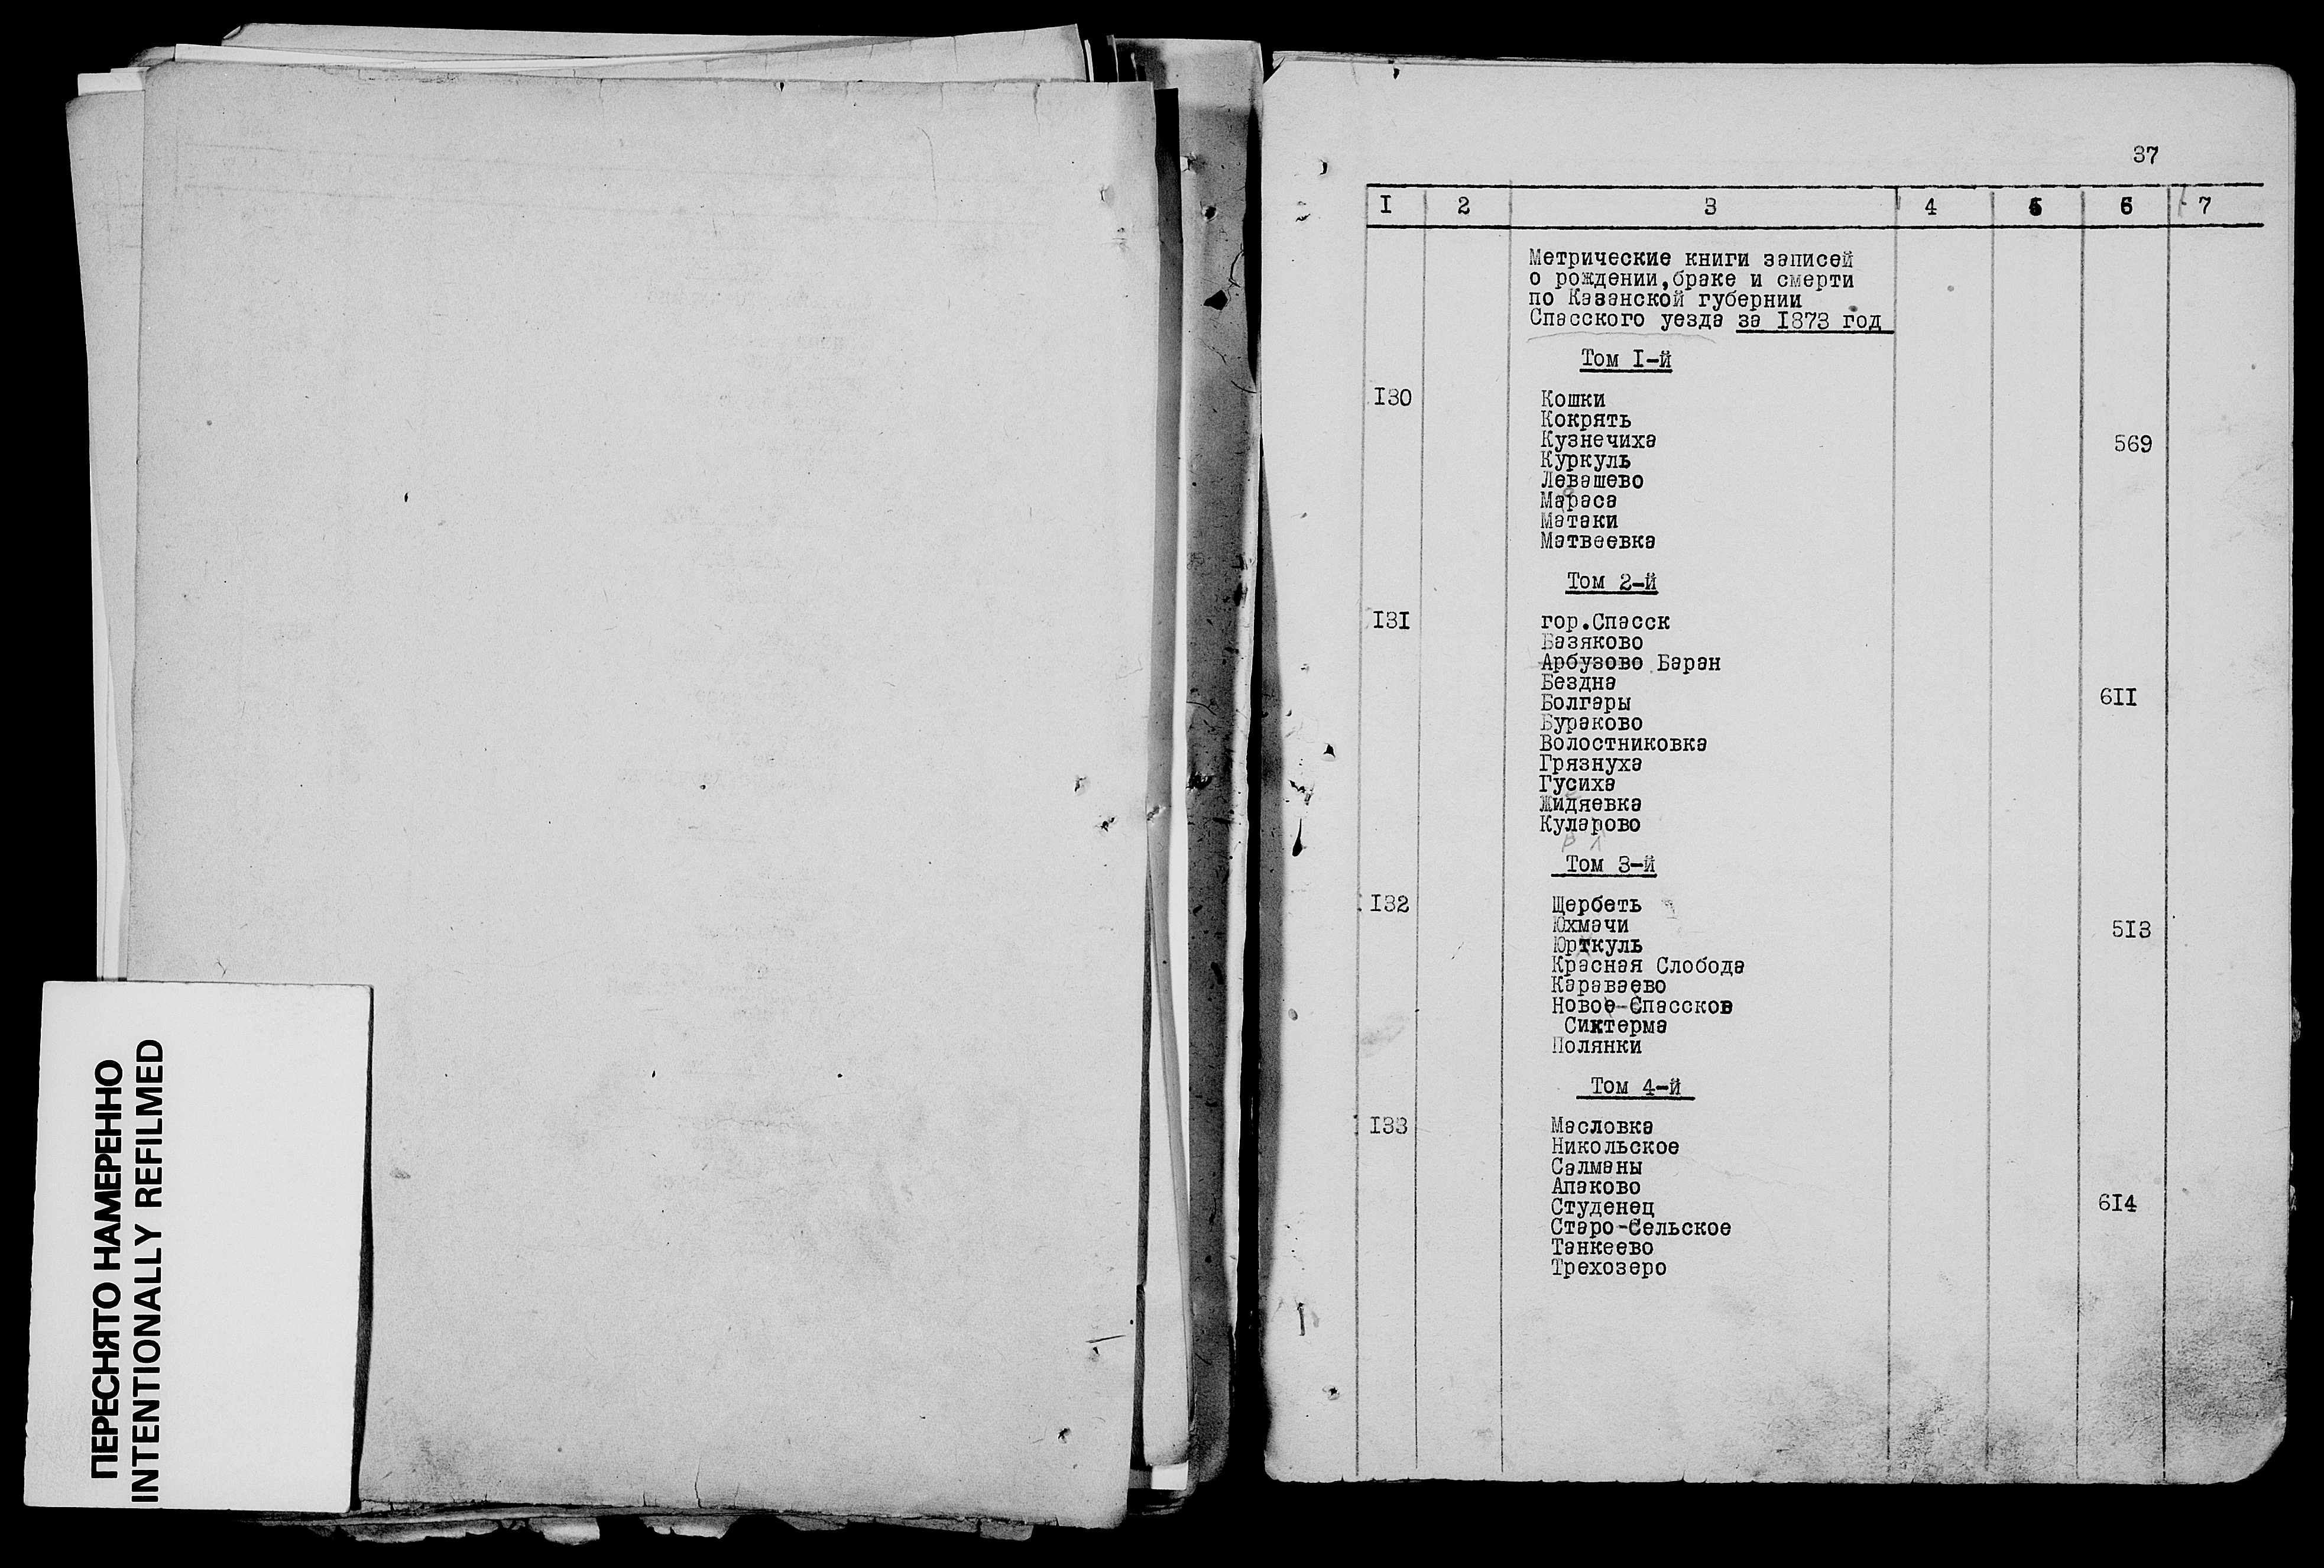 ПЕРЕСНЯТО НАМЕРЕННО
INTENTIONALLY REFILMED
37
I 2 3 4 5 6 7
Метрические книги записей
о рождении,браке и смерти
по Казанской губернии
Спасского уезда за 1873 год
Том I-й
I30 Кошки
Кокрять
Кузнечиха 569
Куркуль
Левашево
Мараса
Матаки
Матвеевка
Том 2-й
I3I гор.Спасск
Базяково
Арбузово Баран
Бездна
Болгары 6II
Бураково
Волостниковка
Грязнуха
Гусиха
Жидяевка
Куларово
р л
Том 3-й
I32 Щербеть
Юхмачи 5I3
Юрткуль
Красная Слобода
Караваево
Новое-Спасское
Сиктерма
Полянки
Том 4-й
I33 Масловка
Никольское
Салманы
Апаково
Студенец 6I4
Старо-Сельское
Танкеево
Трехозеро